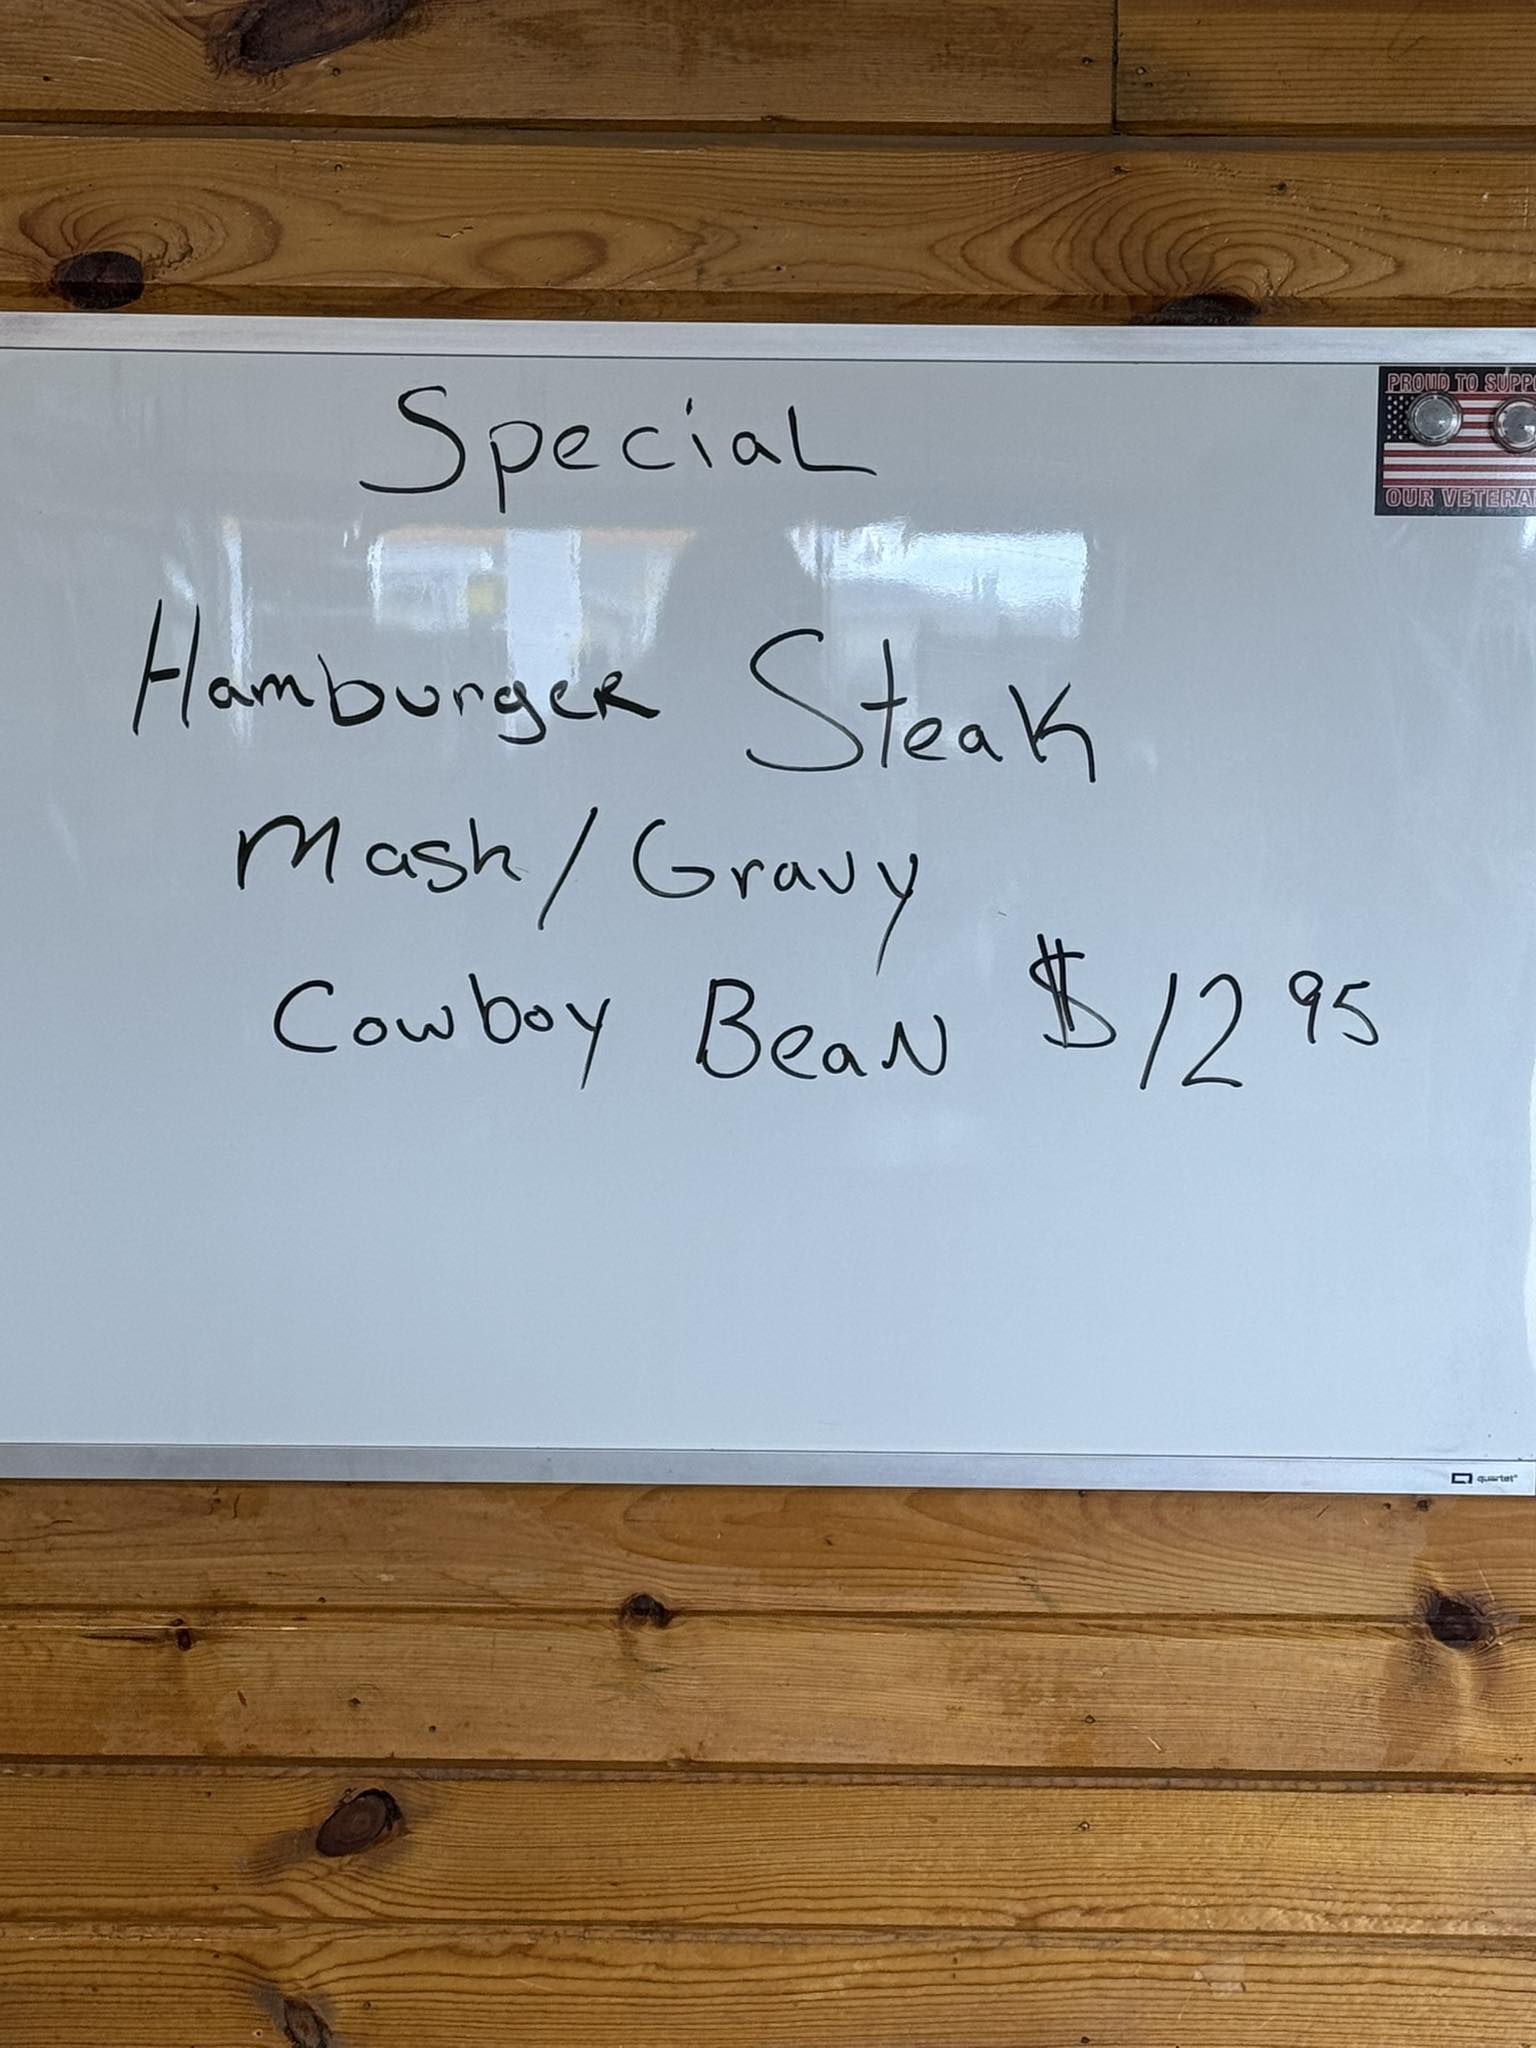 Special
PROUD TO SUPPO
OUR VETERA
Hamburger Steak
Mash/Gravy
Cowboy Bean $12 95
quartet